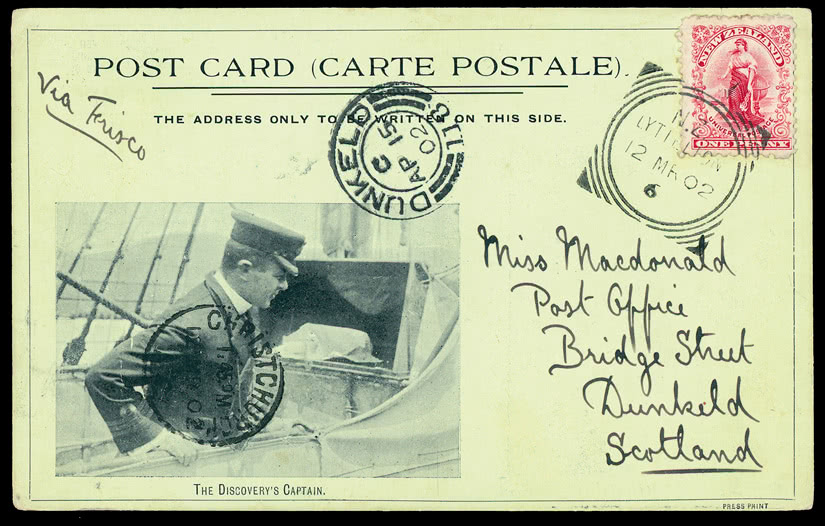 POST CARD (CARTE POSTALE).
THE ADDRESS ONLY TO BE WRITTEN ON THIS SIDE.
Via Frisco
DUNKELD
118
C
AP 15
02
NEW ZEALAND
UNIVERSAL POSTAGE
ONE PENNY
N.Z
LYTTELTON
12 MR 02
6
Miss Macdonald
Post Office
Bridge Street
Dunkeld
Scotland
CHRISTCHURCH
02
THE DISCOVERY'S CAPTAIN.
PRESS PRINT